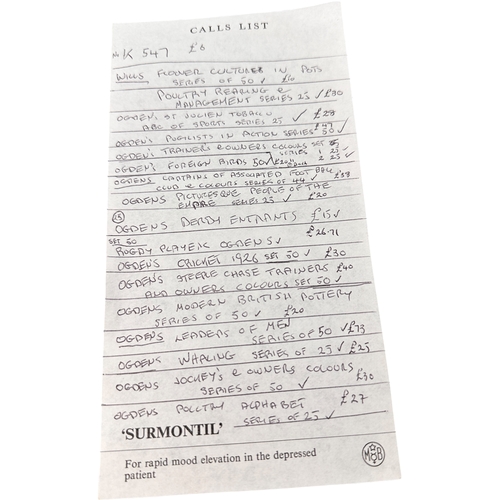 CALLS LIST
No K 547 £6
WILLS FLOWER CULTURE IN POTS
SERIES OF 50 ✓ £16
POULTRY REARING &
MANAGEMENT SERIES 25 ✓ £30
OGDENS ST JULIEN TOBACCO
ABC OF SPORTS SERIES 25 ✓ £28
OGDENS PUGILISTS IN ACTION SERIES 50 ✓ £47
OGDENS TRAINERS & OWNERS COLOURS SET
SERIES 1 25 ✓
OGDENS FOREIGN BIRDS 50 ✓ 2 25 ✓
OGDENS CAPTAINS OF ASSOCIATED FOOT BALL
CLUB & COLOURS SERIES OF 44 ✓ £58
OGDENS PICTURESQUE PEOPLE OF THE
EMPIRE SERIES 25 ✓ £20
OGDENS DERBY ENTRANTS £15 ✓
SET 50 £26.71
RUGBY PLAYERS OGDENS ✓
OGDENS CRICKET 1926 SET 50 ✓ £30
OGDENS STEEPLE CHASE TRAINERS £40
AND OWNERS COLOURS SET 50 ✓
OGDENS MODERN BRITISH POTTERY
SERIES OF 50 ✓ £20
OGDENS LEADERS OF MEN
SERIES OF 50 ✓ £75
OGDENS WHALING SERIES OF 25 ✓ £25
OGDENS JOCKEY'S & OWNERS COLOURS
SERIES OF 50 ✓ £30
OGDENS POULTRY ALPHABET £27
SERIES OF 25 ✓
'SURMONTIL'
For rapid mood elevation in the depressed
patient
M&B